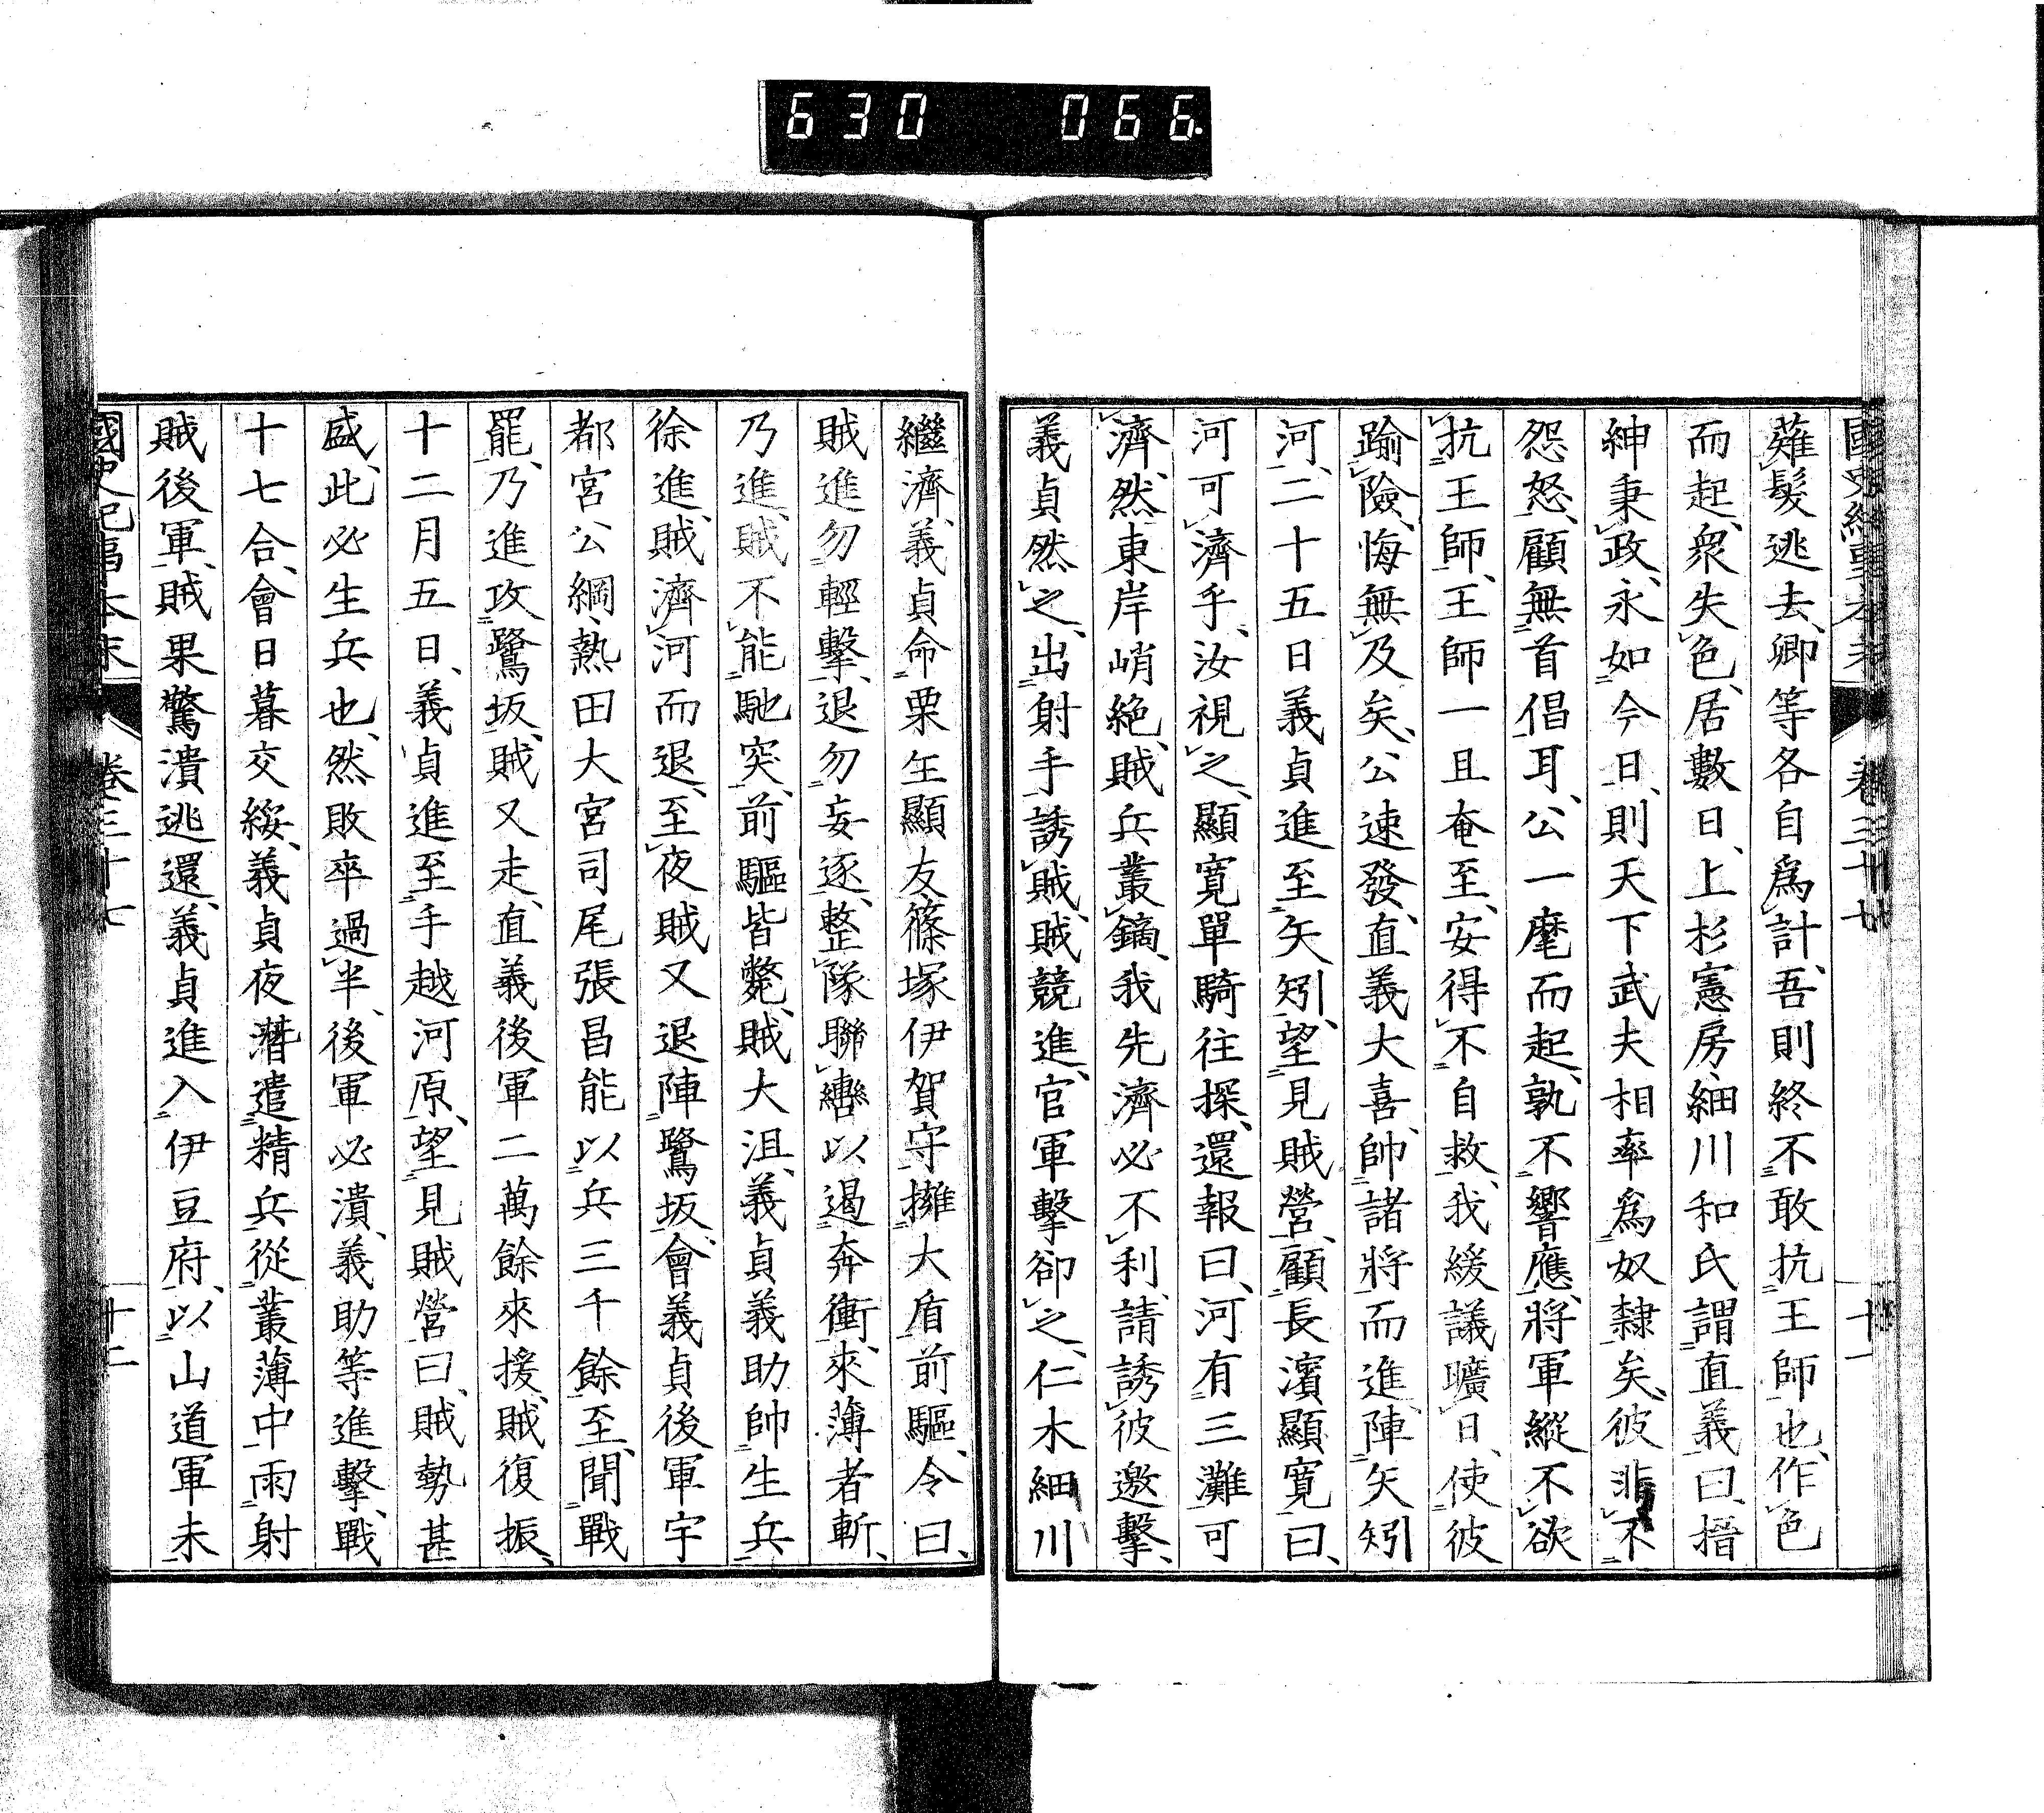 630 066
國史紀事本末 卷三十七 十一
薙髮逃去、卿等各自爲計、吾則終不敢抗王師也、作色
而起、衆失色、居數日、上杉憲房、細川和氏謂直義曰、搢
紳秉政、永如今日、則天下武夫相率爲奴隸矣、彼非不
怨怒、顧無首倡耳、公一麾而起、孰不響應、將軍縱不欲
抗王師、王師一旦奄至、安得不自救、我緩議曠日、使彼
踰險、悔無及矣、公速發、直義大喜、帥諸將而進、陣矢矧
河、二十五日義貞進至矢矧、望見賊營、顧長濱顯寬曰、
河可濟乎、汝視之、顯寬單騎往探、還報曰、河有三灘可
濟、然東岸峭絶、賊兵叢鏑、我先濟必不利、請誘彼邀擊、
義貞然之、出射手誘賊、賊競進、官軍擊卻之、仁木細川
繼濟、義貞命栗生顯友篠塚伊賀守擁大盾前驅、令曰、
賊進勿輕擊、退勿妄逐、整隊聯轡以遏奔衝、來薄者斬、
乃進、賊不能馳突、前驅皆斃、賊大沮、義貞義助帥生兵
徐進、賊濟河而退、至夜賊又退陣鷺坂、會義貞後軍宇
都宮公綱、熱田大宮司尾張昌能以兵三千餘至、聞戰
罷、乃進攻鷺坂、賊又走、直義後軍二萬餘來援、賊復振、
十二月五日、義貞進至手越河原、望見賊營曰、賊勢甚
盛、此必生兵也、然敗卒過半、後軍必潰、義助等進擊、戰
十七合、會日暮交綏、義貞夜潛遣精兵從叢薄中雨射
賊後軍、賊果驚潰逃還、義貞進入伊豆府、以山道軍未
國史紀事本末 卷三十七 十二